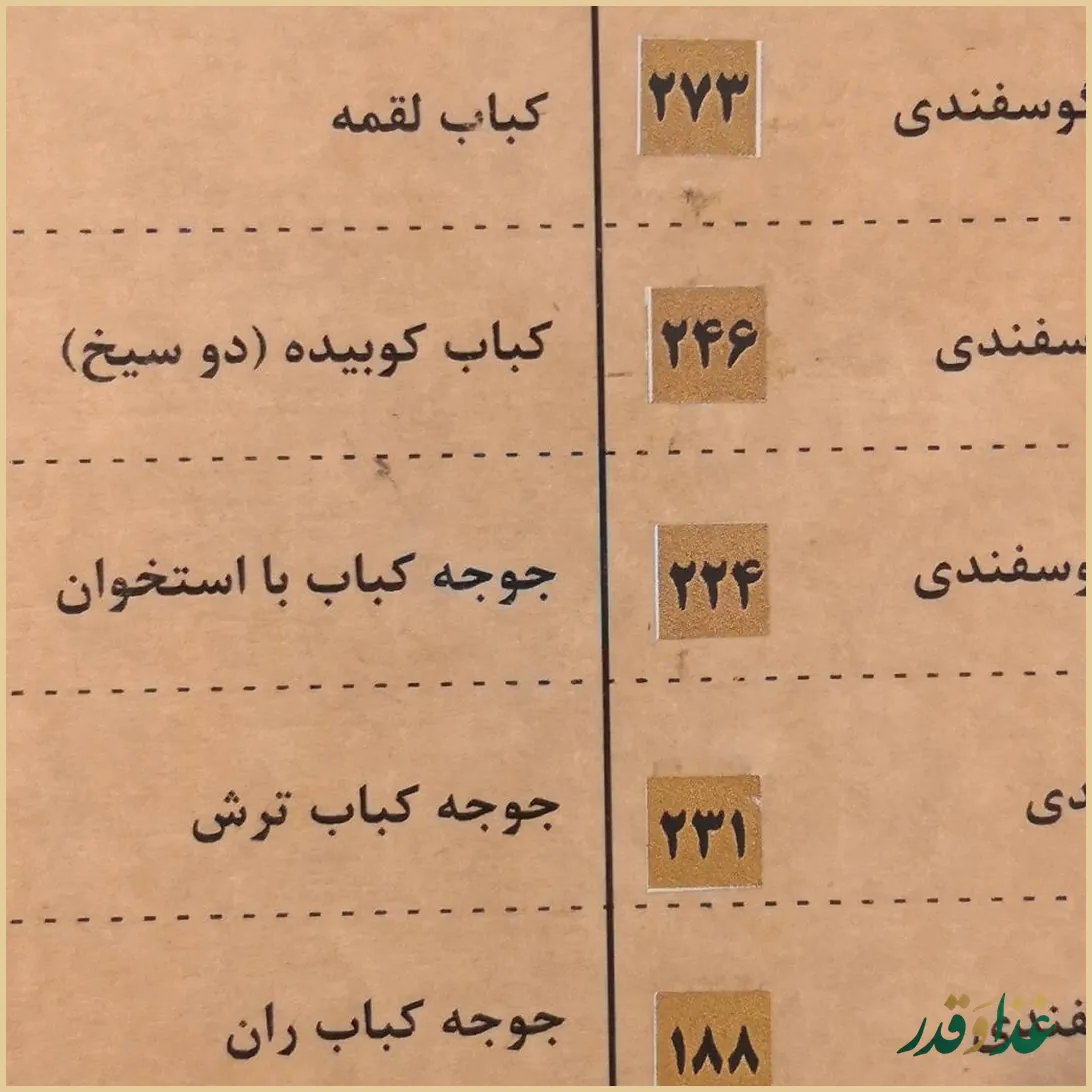 گوسفندی ۲۷۳ کباب لقمه
سفندی ۲۴۶ کباب کوبیده (دو سیخ)
وسفندی ۲۲۴ جوجه کباب با استخوان
دی ۲۳۱ جوجه کباب ترش
فندی ۱۸۸ جوجه کباب ران
غذا و قدر